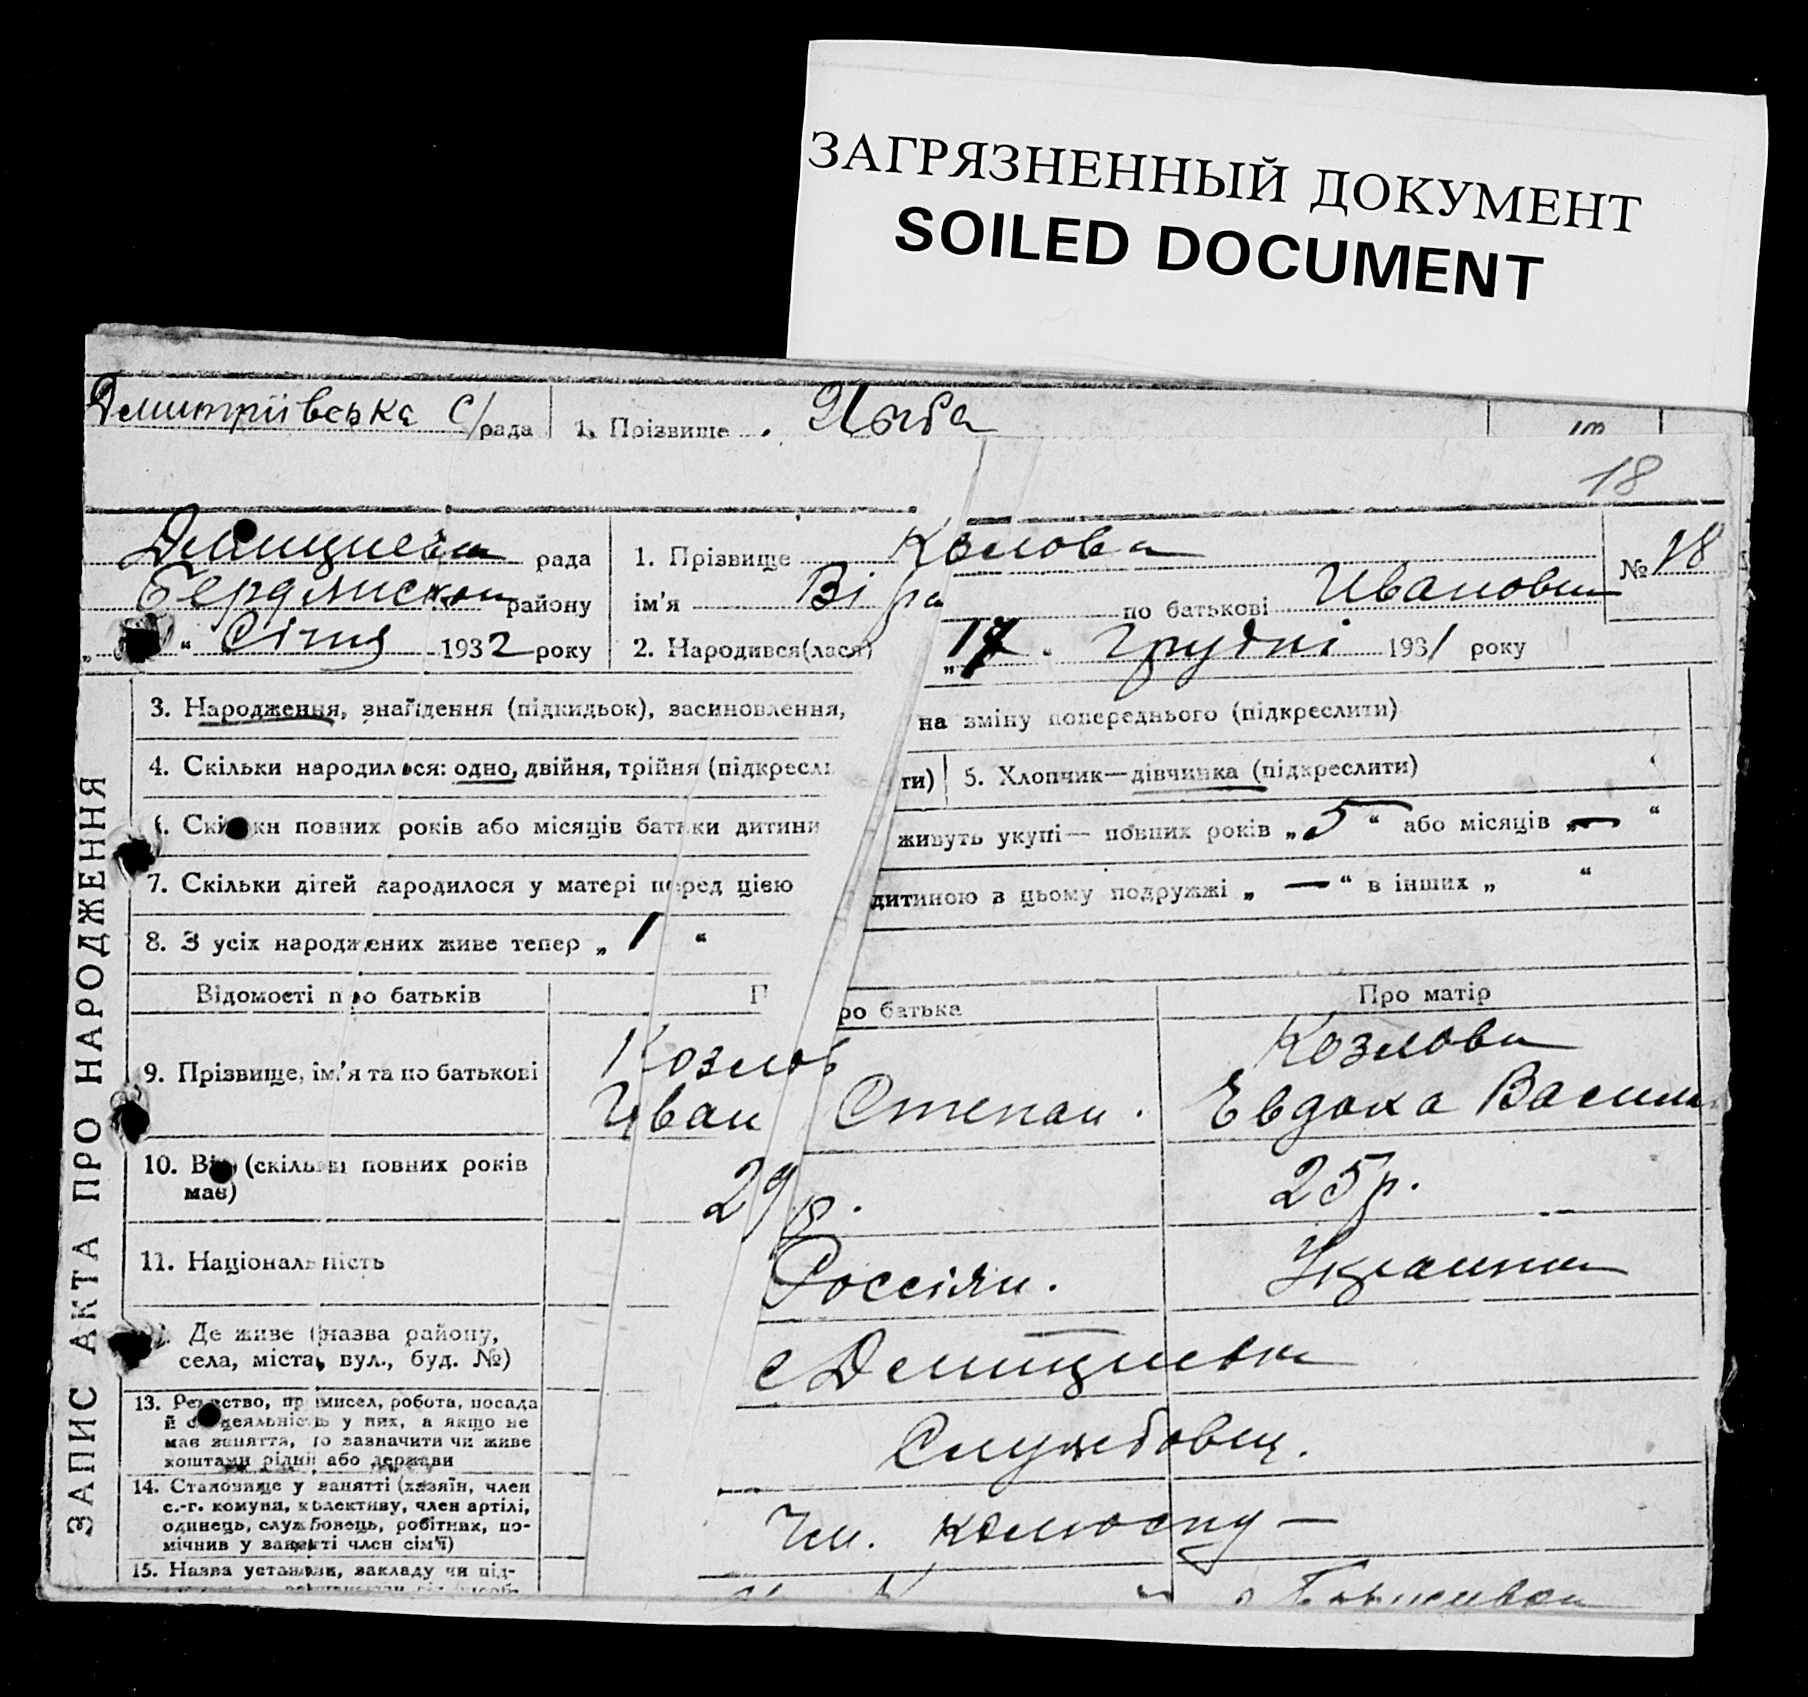 ЗАГРЯЗНЕННЫЙ ДОКУМЕНТ
SOILED DOCUMENT
Дмитріївська с/рада 1. Прізвище
18
рада 1. Прізвище Козлова № 18
району ім'я Віра по батькові Ивановна
" Січня 1932 року 2. Народився(лася) „17 Грудні 1931 року
3. Народження, знайдення (підкидьок), засиновлення, на зміну попереднього (підкреслити)
4. Скільки народилося: одно, двійня, трійня (підкреслити) 5. Хлопчик—дівчинка (підкреслити)
6. Скільки повних років або місяців батьки дитини живуть укупі— повних років „5“ або місяців „—“
7. Скільки дітей народилося у матері перед цією дитиною в цьому подружжі „—“ в інших „ “
8. З усіх народжених живе тепер „1“
Відомості про батьків Про батька Про матір
9. Прізвище, ім'я та по батькові Козлов Козлова
Иван Степан. Евдоха Васили
10. Вік (скільки повних років має) 29 р. 25 р.
11. Національність Россіян. Украинка
12. Де живе (назва району,
села, міста, вул., буд. №)
13. Ремество, промисел, робота, посада
й спеціяльність у них, а якщо не
має заняття, то зазначити чи живе
коштами рідні або держави
Службовец.
14. Становище у занятті (хазяїн, член
с.-г. комуни, колективу, член артілі,
одинець, службовець, робітник, по-
мічник у занятті член сім'ї)
Чл. —
15. Назва установи, закладу чи під-
ЗАПИС АКТА ПРО НАРОДЖЕННЯ